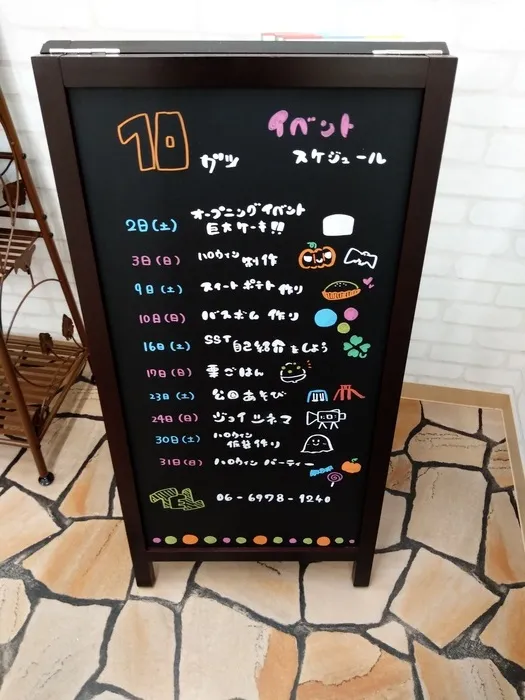 10ガツ イベント
スケジュール
2日(土) オープニングイベント
巨大ケーキ!!
3日(日) ハロウィン制作
9日(土) スイートポテト作り
10日(日) バスボム作り
16日(土) SST自己紹介をしよう
17日(日) 栗ごはん
23日(土) 公園あそび
24日(日) ジョイシネマ
30日(土) ハロウィン
仮装作り
31日(日) ハロウィンパーティー
TEL 06-6978-1240